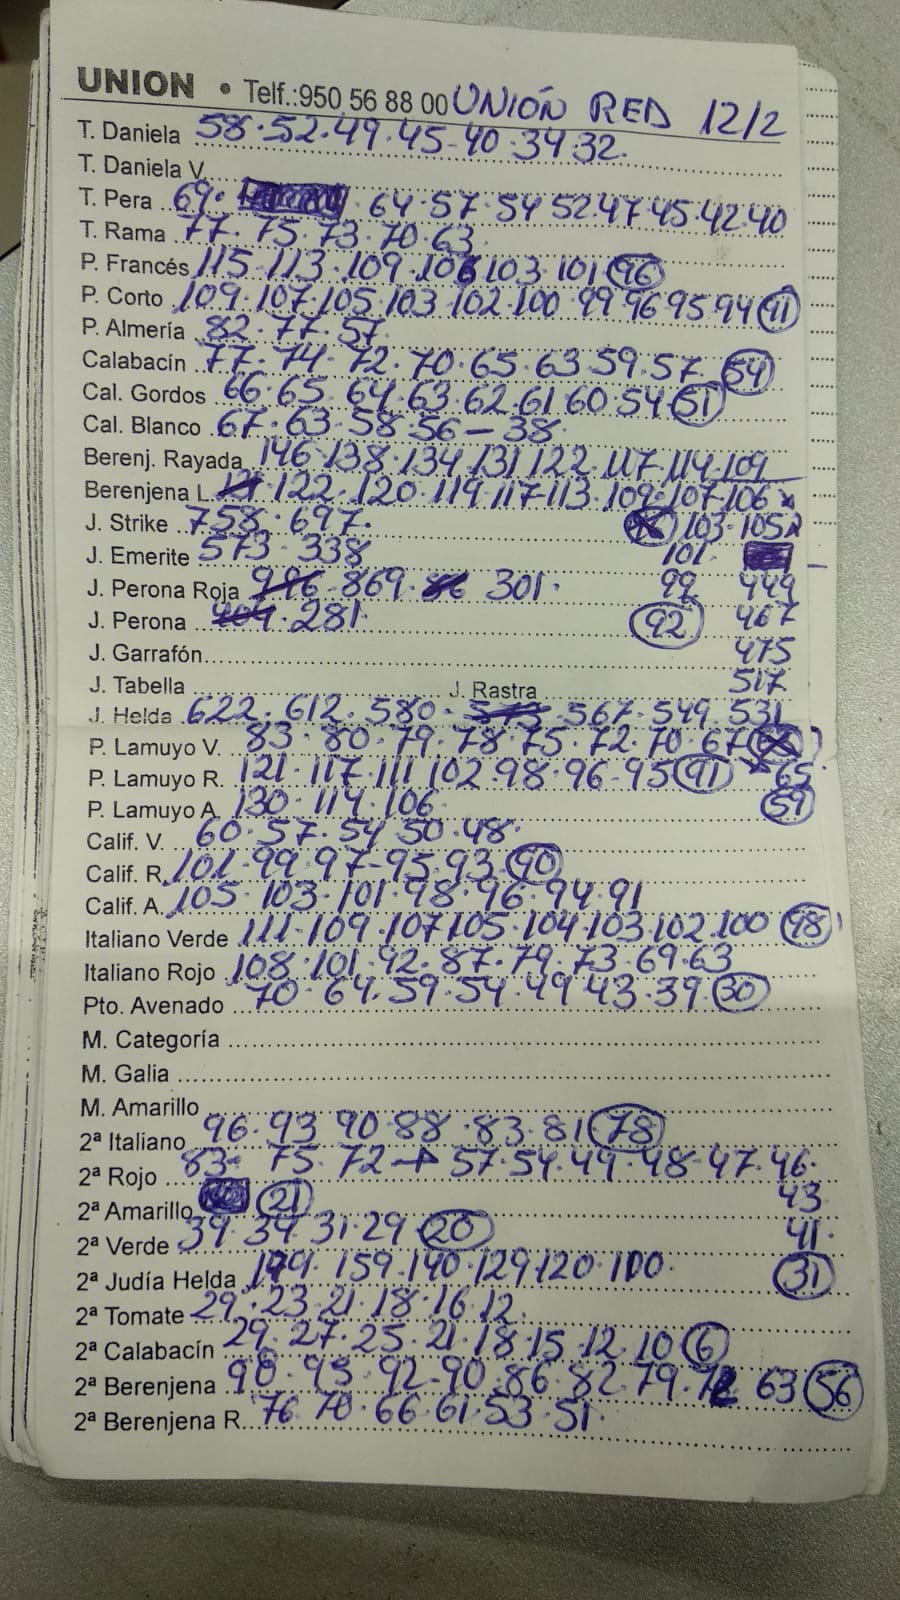 UNION • Telf.:950 56 88 00 UNIÓN RED 12/2
T. Daniela 58·52·49·45-40·34 32
T. Daniela V.
T. Pera 69· 64·57·54 52·47 45·42·40
T. Rama 77·75·73·70·63
P. Francés 115·113·109·106 103·101 96
P. Corto 109·107·105·103·102·100·99 96 95 94 91
P. Almería 82·77·57
Calabacín 77·74·72·70·65·63 59·57 54
Cal. Gordos 66·65·64·63·62·61 60 54 51
Cal. Blanco 67·63·58·56 – 38
Berenj. Rayada 146·138·134 131 122·117·114·109
Berenjena L. 122·120·119 117 113·109·107·106
J. Strike 758·697· 103·105
J. Emerite 573·338 101
J. Perona Roja 996·869· 301· 99 449
J. Perona 404·281· 92 467
J. Garrafón 475
J. Tabella J. Rastra 517
J. Helda 622·612·580·573·567·549·531
P. Lamuyo V. 83·80·79·78·75·72·70·67
P. Lamuyo R. 121·117·111 102·98·96·95 91 65
P. Lamuyo A. 130·114·106 59
Calif. V. 60·57·54 50·48·
Calif. R. 101-99 97-95·93 90
Calif. A. 105·103·101·98·96·94·91
Italiano Verde 111·109·107 105·104·103·102·100 98
Italiano Rojo 108·101·92·87·79·73·69·63
Pto. Avenado 70·64·59·54·49 43·39 30
M. Categoría
M. Galia
M. Amarillo
2ª Italiano 96·93 90·88·83·81 78
2ª Rojo 83· 75·72 → 57·54·49·48·47·46·
2ª Amarillo 21 43
2ª Verde 39·34·31·29 20 41·
2ª Judía Helda 159·140·129 120·100· 31
2ª Tomate 29·23·21·18·16·12
2ª Calabacín 29·27·25·21·18·15·12·10 6
2ª Berenjena 98·95·92·90·86·82·79·72 63 56
2ª Berenjena R. 76 70·66·61·53·51·